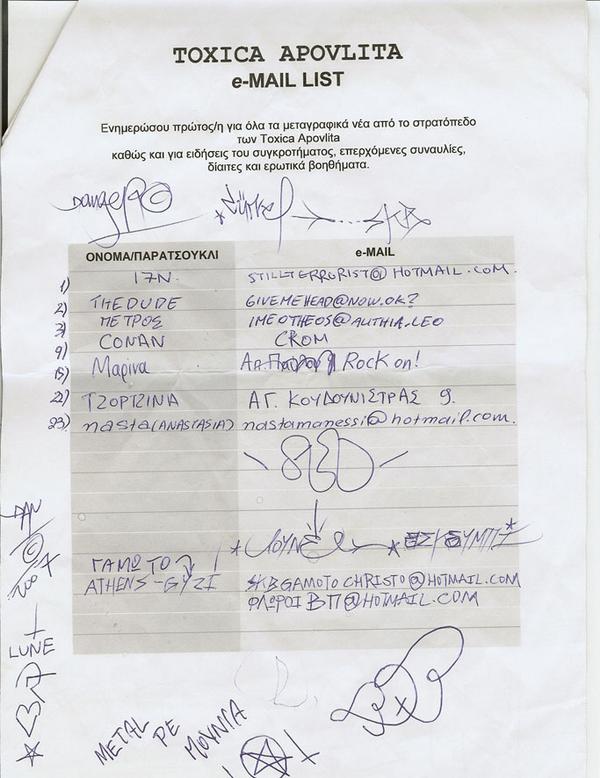 TOXICA APOVLITA
e-MAIL LIST
Ενημερώσου πρώτος/η για όλα τα μεταγραφικά νέα από το στρατόπεδο
των Toxica Apovlita
καθώς και για ειδήσεις του συγκροτήματος, επερχόμενες συναυλίες,
δίαιτες και ερωτικά βοηθήματα.
ΟΝΟΜΑ/ΠΑΡΑΤΣΟΥΚΛΙ e-MAIL
1) 17N. STILLTERRORIST@HOTMAIL.COM.
2) THEDUDE GIVEMEHEAD@NOW.OK?
3) ΠΕΤΡΟΣ IMEOTHEOS@ALITHIA.LEO
9) CONAN CROM
15) Μαρίνα Rock on!
22) ΤΖΩΡΤΖΙΝΑ ΑΓ. ΚΟΥΔΟΥΝΙΣΤΡΑΣ 9.
23) nasta (ANASTASIA) nastamanessi@hotmail.com.
ΓΑΜΩ ΤΟ
ATHENS-GYZI SKBGAMOTOCHRISTO@HOTMAIL.COM
ΦΛΩΡΟΙ ΒΠ@HOTMAIL.COM
2007
LUNE
METAL ΡΕ ΜΟΥΝΙΑ